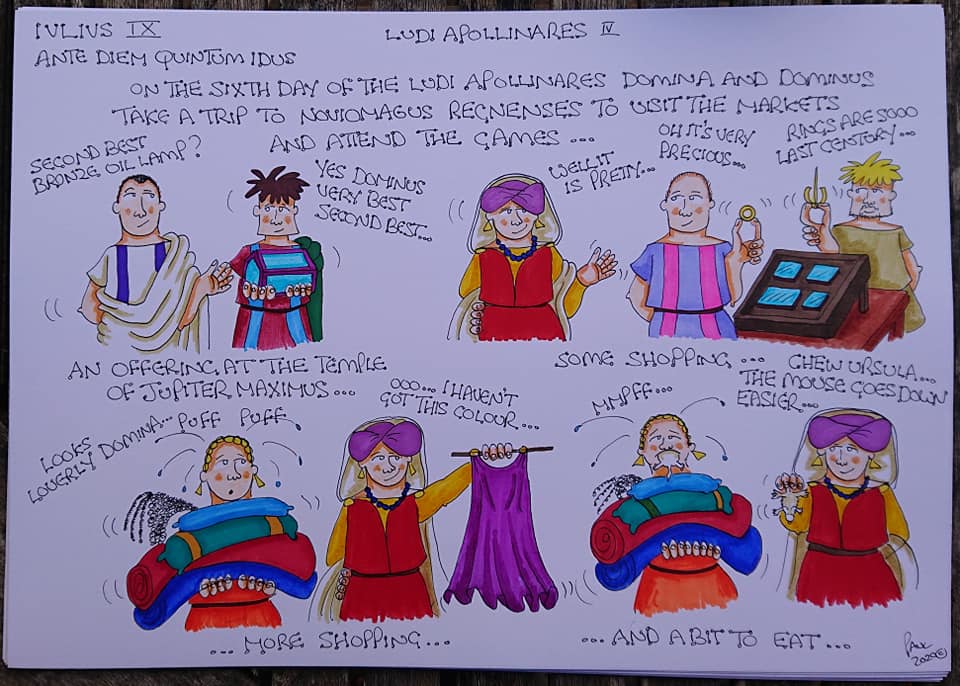 IVLIVS IX
LUDI APOLLINARES IV
ANTE DIEM QUINTUM IDUS
ON THE SIXTH DAY OF THE LUDI APOLLINARES DOMINA AND DOMINUS
TAKE A TRIP TO NOVIOMAGUS REGNENSES TO VISIT THE MARKETS
AND ATTEND THE GAMES ...
SECOND BEST
BRONZE OIL LAMP?
YES DOMINUS
VERY BEST
SECOND BEST...
WELL IT
IS PRETTY...
OH IT'S VERY
PRECIOUS...
RINGS ARE SOOO
LAST CENTORY...
AN OFFERING AT THE TEMPLE
OF JUPITER MAXIMUS...
SOME SHOPPING ...
LOOKS
LOVERLY DOMINA...
PUFF PUFF
OOO... I HAVEN'T
GOT THIS COLOUR...
MMPFF...
CHEW URSULA...
THE MOUSE GOES DOWN
EASIER...
... MORE SHOPPING ...
... AND A BIT TO EAT ...
2020©